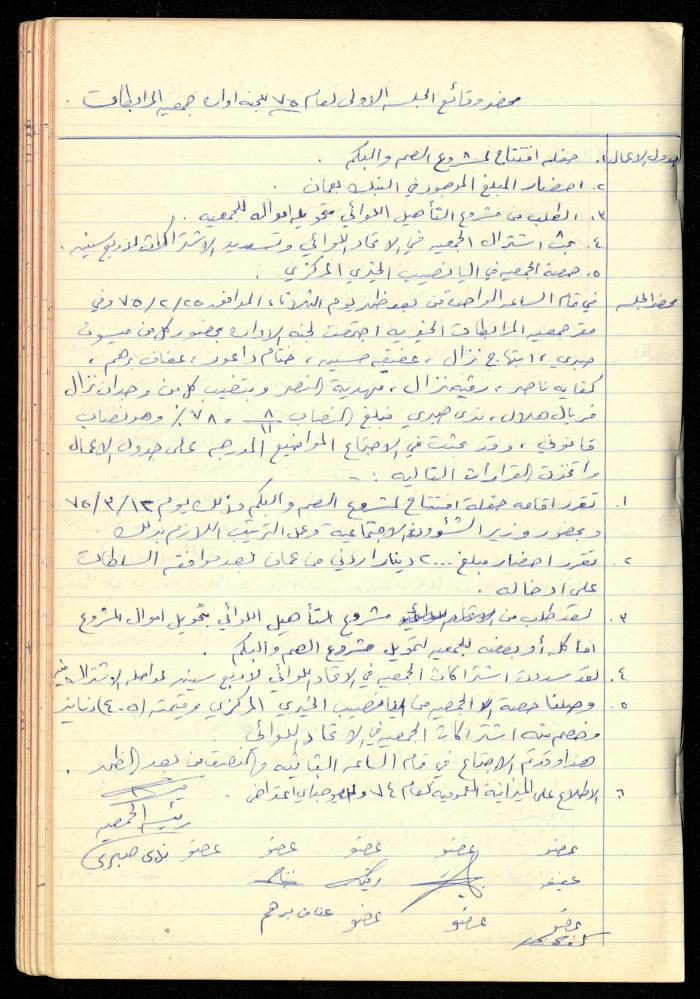 محضر وقائع الجلسه الاولى لعام ٧٥ للجنه اداره جمعيه المرابطات .
جدول الاعمال ١. حفله افتتاح لمشروع الصم والبكم .
٢. احضار المبلغ الموجود في البنك بعمان .
٣. الطلب من مشروع التأهيل اللوائي بتحويل امواله للجمعيه .
٤. بحث اشتراك الجمعيه في الاتحاد اللوائي وتسديد الاشتراكات لاربع سنين .
٥. حصة الجمعيه في اليانصيب الخيري المركزي .
محضر الجلسه في تمام الساعه الواحده من بعد ظهر يوم الثلاثاء الموافق ٢٥/ ٢/ ٧٥ وفي
مقر جمعيه المرابطات الخيريه اجتمعت لجنه الاداره بحضور كل من ميسون
صبري ، ابتهاج نزال ، عفيفه حسنيه ، ختام داعور ، عفاف برهم ،
كفايه ناصر ، رقيه نزال ، مهدية النصر وبتغيب كل من وجدان نزال
فريال هلال ، ندى صبري فبلغ النصاب ٨/١١ ، ٧٨٪ وهو نصاب
قانوني ، وقد بحثت في الاجتماع المواضيع المدرجه على جدول الاعمال
واتخذت القرارات التاليه :-
١. تقرر اقامه حفلة افتتاح لمشروع الصم والبكم وذلك يوم ١٣/ ٣/ ٧٥
وبحضور وزير الشؤون الاجتماعية وعمل الترتيب اللازم بذلك
٢. تقرر احضار مبلغ ٢٠٠٠ دينار اردني من عمان بعد موافقه السلطات
على ادخاله .
٣. لقد طلب من مشروع التأهيل اللوائي بتحويل اموال المشروع
اما كله أو بعضه للجمعيه لتمويل مشروع الصم والبكم .
٤. لقد سددت اشتراكات الجمعيه في الاتحاد اللوائي لاربع سنين لمواصله الاشتراك فيه
٥. وصلنا حصة الجمعيه من اليانصيب الخيري المركزي وقيمته (٤٠٥) دنانير
وخصم منه اشتراكات الجمعيه في الاتحاد اللوائي
هذا وقد تم الاجتماع في تمام الساعه الثانيه والنصف من بعد الظهر .
٦ الاطلاع على الميزانية العمومية لعام ٧٤ اعتراض .
رئيسه الجمعيه
عضو عضو عضو عضو عضو ندى صبري
عفيفه ختام
عضو عضو عضو عفاف برهم